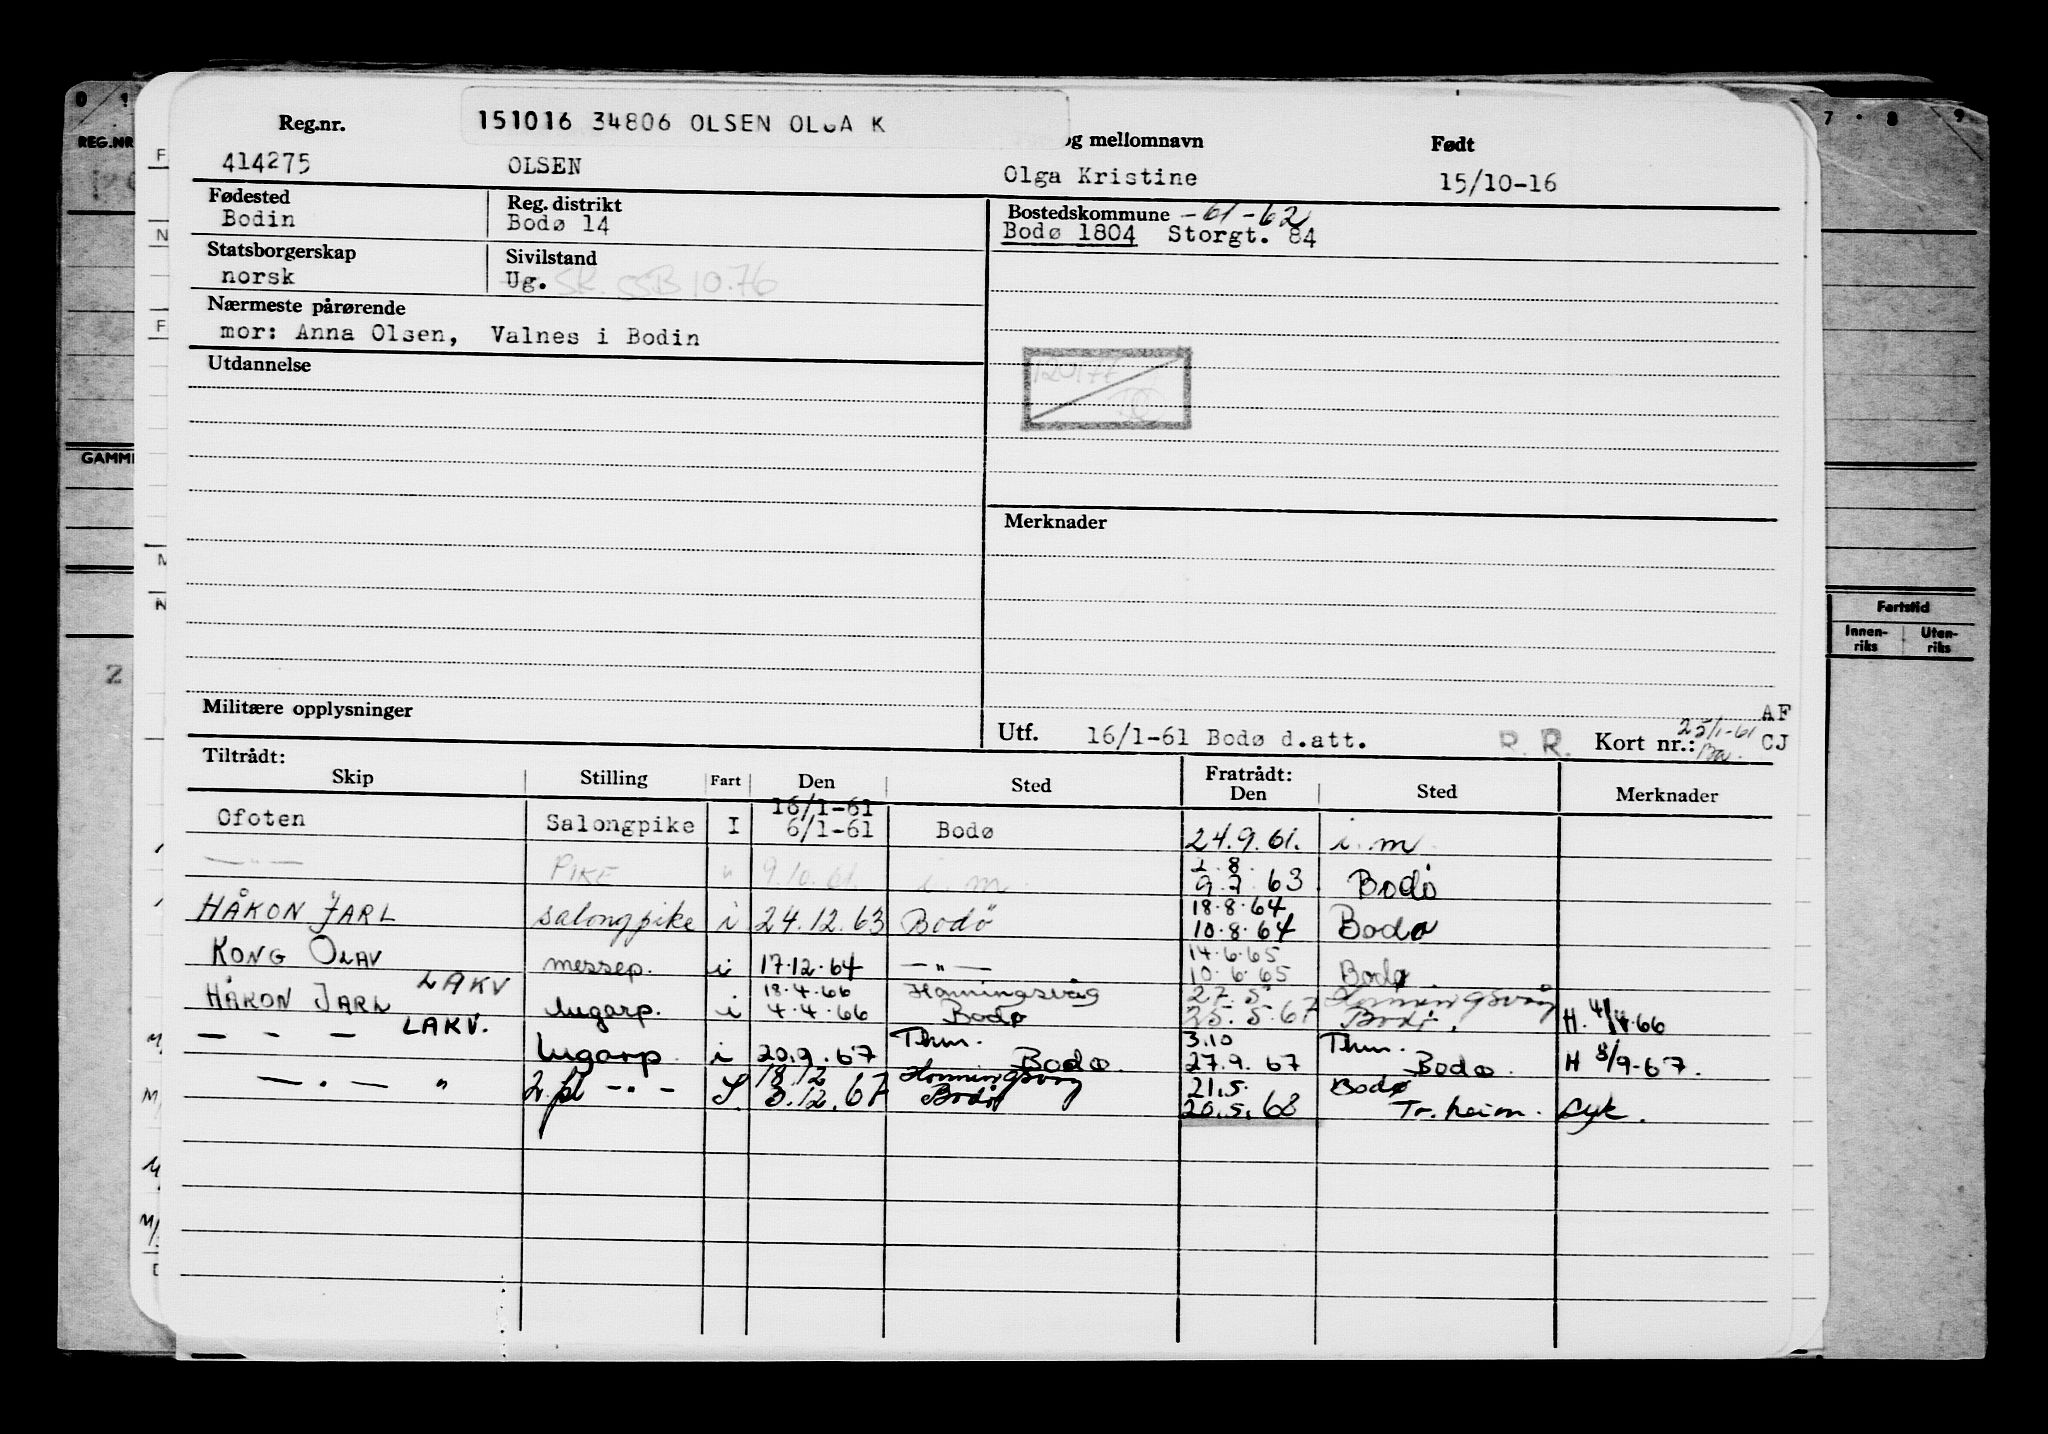 151016 34806 OLSEN OLGA K
Reg.nr. og mellomnavn Født
414275 OLSEN Olga Kristine 15/10-16
Fødested Reg. distrikt Bostedskommune -61-62
Bodin Bodø 14 Bodø 1804 Storgt. 84
Statsborgerskap Sivilstand
norsk Ug. SK. SSB 10.76
Nærmeste pårørende
mor: Anna Olsen, Valnes i Bodin
Utdannelse
Merknader
Militære opplysninger
AF
Utf. 16/1-61 Bodø d.att. R. R. Kort nr.: 25/1-61 CJ
Tiltrådt: Fratrådt:
Skip Stilling Fart Den Sted Den Sted Merknader
16/1-61
Ofoten Salongpike I 6/1-61 Bodø 24.9.61. i. m.
—"— PIKE " 9.10.61. i. m. 9.7.63. Bodø
18.8.64
HÅKON JARL salongpike i 24.12.63 Bodö 10.8.64 Bodø
14.6.65
KONG OLAV messep. i 17.12.64 —"— 10.6.65 Bodø
LAKV 18.4.66 Honningsvåg 27.5 Honningsvåg
HÅKON JARL lugarp. i 4.4.66 Bodø 25.5.67 Bodø. H. 4/4.66
LAKV. Thm. 3.10 Thm.
— — — lugarp. i 20.9.67 Bodø. 27.9.67 Bodø. H 8/9.67.
18.12 Honningsvåg 21.5. Bodø
— . — " 2. pl —"— 3.12.67 Bodø 20.5.68 Tr.heim. syk.
REG.NR
GAMM
Fartstid
Innen-riks Uten-riks
7 . 8 9
0 1
2